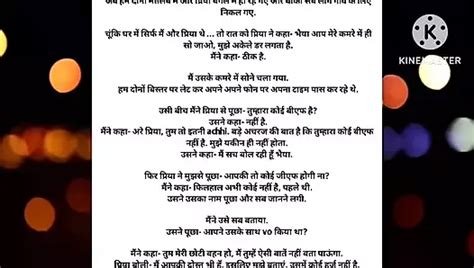 अब हम दोनों मौसिक में और प्रिया बगल में ही रह गए और बाकी सब लोग गांव के लिए
निकल गए.
चूंकि घर में सिर्फ मैं और प्रिया थे … तो रात को प्रिया ने कहा- भैया आप मेरे कमरे में ही
सो जाओ, मुझे अकेले डर लगता है.
मैंने कहा- ठीक है.
मैं उसके कमरे में सोने चला गया.
हम दोनों बिस्तर पर लेट कर अपने अपने फोन पर अपना टाइम पास कर रहे थे.
उसी बीच मैंने प्रिया से पूछा- तुम्हारा कोई बीएफ है?
उसने कहा- नहीं है.
मैंने कहा- अरे प्रिया, तुम तो इतनी achhi. बड़े अचरज की बात है कि तुम्हारा कोई बीएफ
नहीं है. मुझे यकीन ही नहीं होता.
उसने कहा- मैं सच बोल रही हूँ भैया.
फिर प्रिया ने मुझसे पूछा- आपकी तो कोई जीएफ होगी ना?
मैंने कहा- फिलहाल अभी कोई नहीं है, पहले थी.
उसने उसका नाम पूछा और सब जानने लगी.
मैंने उसे सब बताया.
उसने पूछा- आपने उसके साथ vo किया था?
मैंने कहा- तुम मेरी छोटी बहन हो, मैं तुम्हें ऐसी बातें नहीं बता पाऊंगा.
प्रिया बोली- मैं आपकी दोस्त भी हूँ, इसलिए मुझे बताएं. उसमें कोई हर्ज नहीं है.
KINEMASTER